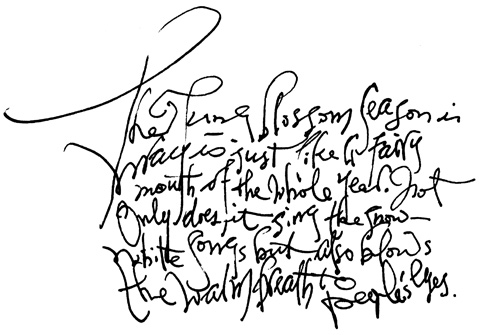 The Tung Blossom Season in
May is just like a fairy
month of the whole year. Not
Only does it sing the snow-
white songs but also blows
the warm breath to
people's eyes.